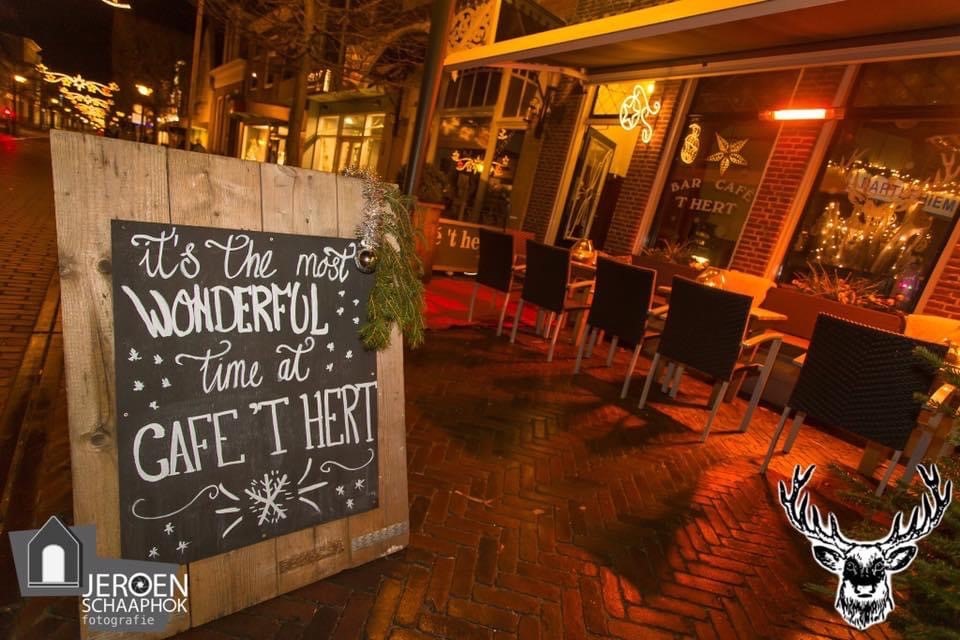 it's the most
WONDERFUL
time at
CAFE 'T HERT
BAR CAFE
'T HERT
é 't he
JEROEN
SCHAAPHOK
fotografie